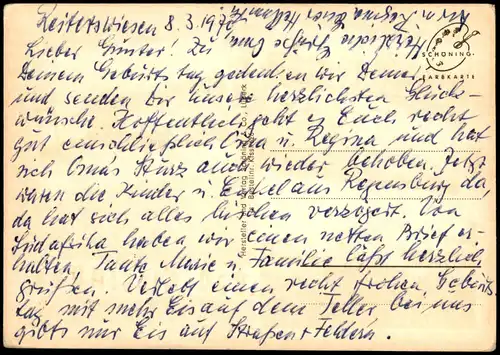 Reiterswiesen 8.3.1970
Lieber Günter! Zu
Deinem Geburtstag gedenken wir Deiner
und senden Dir unsere herzlichsten Glück-
wünsche. Hoffentlich geht es Euch recht
gut einschließlich Oma u. Regina und hat
sich Omas Sturz auch wieder behoben. Jetzt
waren die Kinder u. Enkel aus Regensburg da,
da hat sich alles bischen verzögert. Von
Südafrika haben wir einen netten Brief er-
halten, Tante Marie u. Familie läßt herzlich
grüßen. Verlebt einen recht frohen Geburts
tag mit mehr Eis auf dem Teller bei uns
gibts nur Eis auf Straßen + Feldern.
Herzliche Grüße Eure
SCHÖNING
FARBKARTE